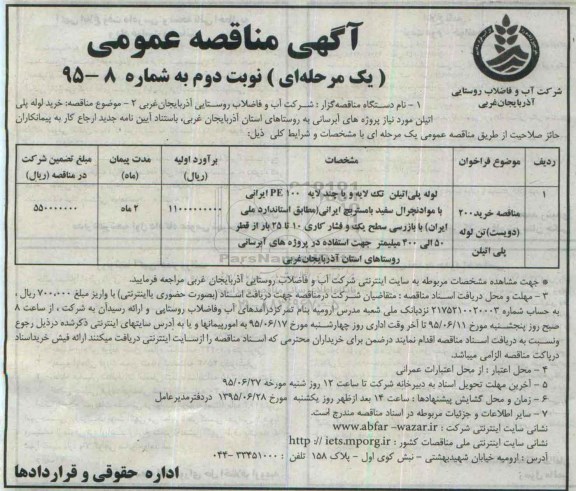 آگهی مناقصه عمومی
( یک مرحله‌ای ) نوبت دوم به شماره ۸ -۹۵
شرکت آب و فاضلاب روستایی
آذربایجان غربی
۱ – نام دستگاه مناقصه‌گزار : شرکت آب و فاضلاب روستایی آذربایجان‌غربی ۲ – موضوع مناقصه: خرید لوله پلی
اتیلن مورد نیاز پروژه های آبرسانی به روستاهای استان آذربایجان غربی، باستناد آیین نامه جدید ارجاع کار به پیمانکاران
حائز صلاحیت از طریق مناقصه عمومی یک مرحله ای با مشخصات و شرایط کلی ذیل:
ردیف	موضوع فراخوان	مشخصات	برآورد اولیه (ریال)	مدت پیمان (ماه)	مبلغ تضمین شرکت در مناقصه (ریال)
۱	مناقصه خرید ۲۰۰ (دویست) تن لوله پلی اتیلن	لوله پلی‌اتیلن تک لایه و یا چند لایه PE ۱۰۰ ایرانی با مواد نچرال سفید با مستربچ ایرانی(مطابق استاندارد ملی ایران) با بازرسی سطح یک و فشار کاری ۱۰ تا ۲۵ بار از قطر ۵۰ الی ۴۰۰ میلیمتر جهت استفاده در پروژه های آبرسانی روستاهای استان آذربایجان‌غربی	۱۱۰۰۰۰۰۰۰۰۰	۲ ماه	۵۵۰۰۰۰۰۰۰
* جهت مشاهده مشخصات مربوطه به سایت اینترنتی شرکت آب و فاضلاب روستایی آذربایجان غربی مراجعه فرمایید.
۳ – مهلت و محل دریافت اسناد مناقصه : متقاضیان شرکت درمناقصه جهت دریافت اسناد (بصورت حضوری یااینترنتی) با واریز مبلغ ۷۰۰,۰۰۰ ریال ،
به حساب شماره ۲۱۷۵۲۱۰۰۲۰۰۰۳ نزدبانک ملی شعبه مدرس ارومیه بنام تمرکزدرآمدهای آب وفاضلاب روستایی و ارائه رسیدآن به شرکت ، از ساعت ۸
صبح روز پنجشنبه مورخ ۹۵/۰۶/۱۱ تا آخر وقت اداری روز چهارشنبه مورخ ۹۵/۰۶/۱۷ به امورپیمانها و یا به آدرس سایتهای اینترنتی ذکرشده درذیل رجوع
ونسبت به دریافت اسناد مناقصه اقدام نمایند درضمن برای خریداران محترمی که اسناد مناقصه را ازسایت اینترنتی دریافت میکنند ارائه فیش خریداسناد
درپاکت مناقصه الزامی میباشد.
۴ – محل اعتبار : از محل اعتبارات عمرانی
۵ – آخرین مهلت تحویل اسناد به دبیرخانه شرکت تا ساعت ۱۲ روز شنبه مورخه ۹۵/۰۶/۲۷
۶ – زمان و محل گشایش پیشنهادها : ساعت ۱۴ بعد ازظهر روز یکشنبه مورخ ۱۳۹۵/۰۶/۲۸ دردفترمدیرعامل
۷ – سایر اطلاعات و جزئیات مربوطه در اسناد مناقصه مندرج است.
نشانی سایت اینترنتی شرکت : www.abfar -wazar.ir
نشانی سایت اینترنتی ملی مناقصات کشور : http :// iets.mporg.ir
آدرس : ارومیه خیابان شهیدبهشتی – نبش کوی اول – پلاک ۱۵۸ تلفن : ۳۳۴۵۱۰۰۰ – ۰۴۴
اداره حقوقی و قراردادها